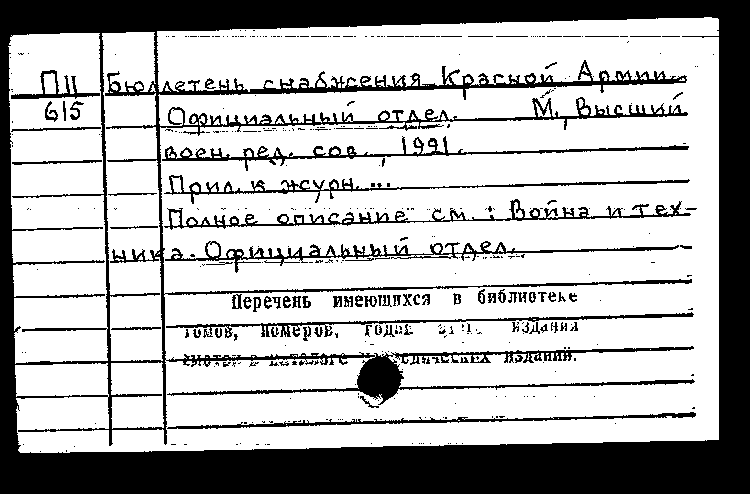 ПII Бюллетень снабжения Красной Армии.
615 Официальный отдел. М., Высший
воен. ред. сов., 1921.
Прил. к журн. ...
Полное описание см.: Война и тех-
ника. Официальный отдел.
Перечень имеющихся в библиотеке
томов, номеров, годов издания
смотри в каталоге издании.